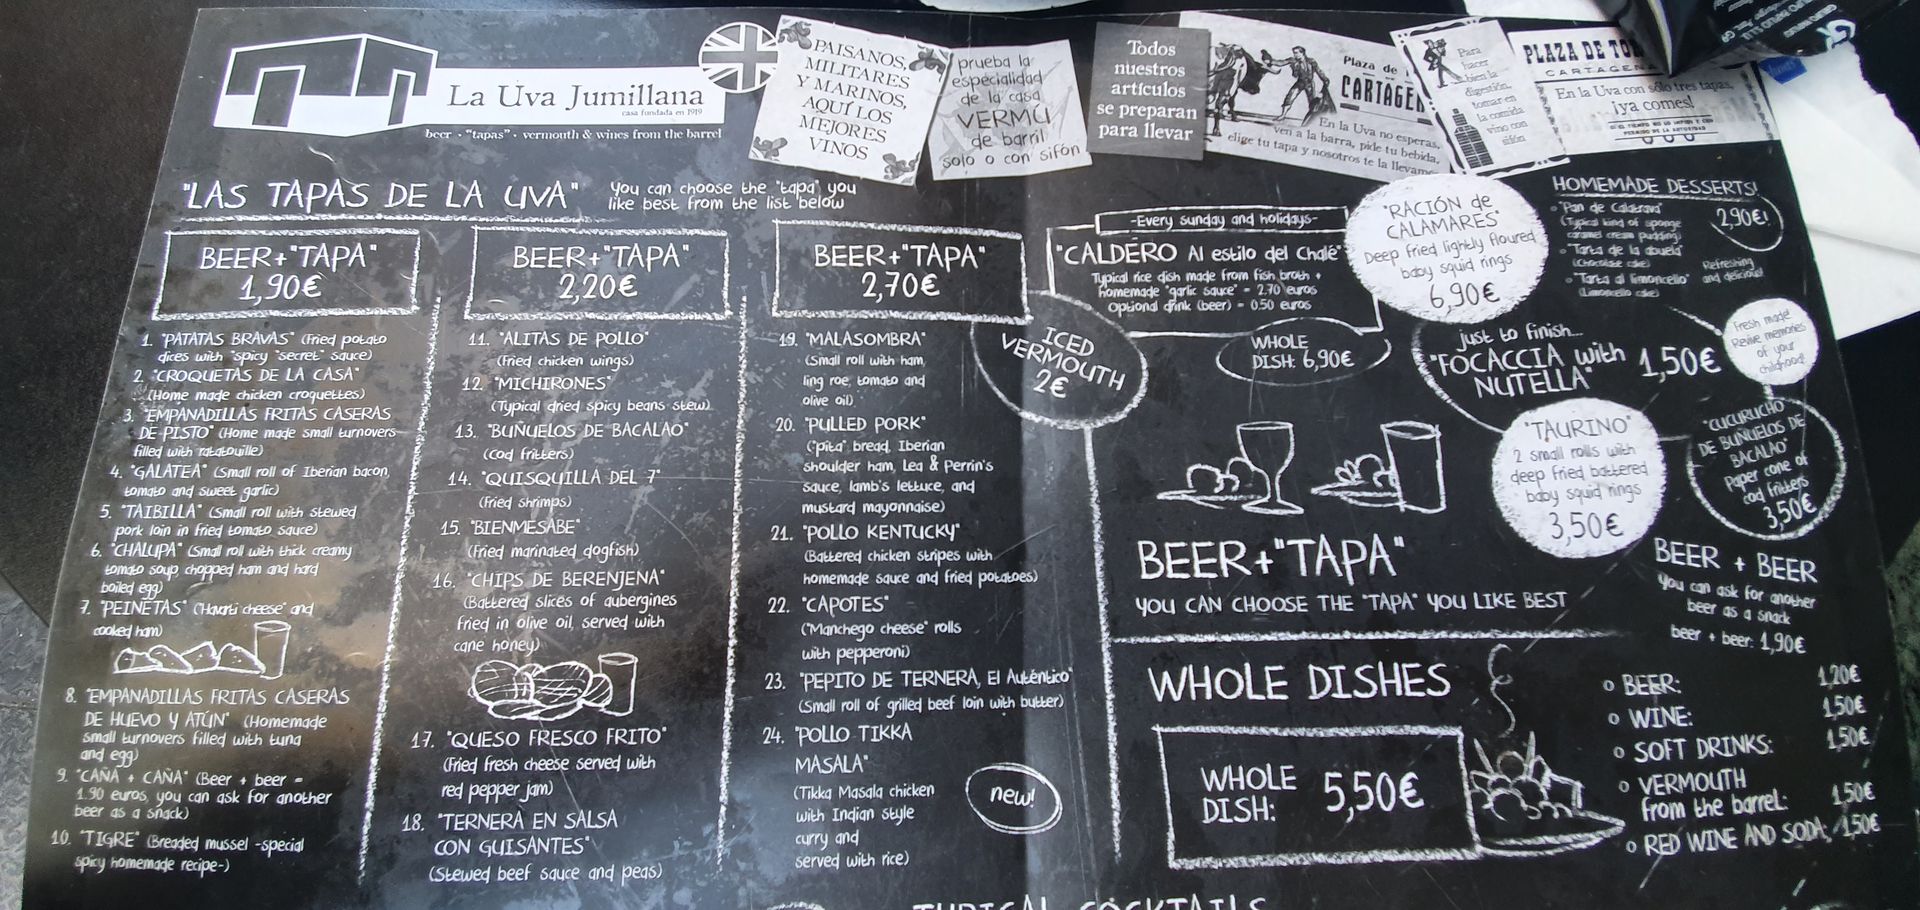 La Uva Jumillana
casa fundada en 1919
beer · "tapas" · vermouth & wines from the barrel
PAISANOS,
MILITARES
Y MARINOS,
AQUÍ LOS
MEJORES
VINOS
prueba la
especialidad
de la casa
VERMÚ
de barril
solo o con sifón
Todos
nuestros
artículos
se preparan
para llevar
Plaza de
CARTAGEN
En la Uva no esperas,
ven a la barra, pide tu bebida,
elige tu tapa y nosotros te la llevamo
Para
hacer
bien la
digestión,
tomar en
la comida
vino con
sifón
PLAZA DE TO
CARTAGEN
En la Uva con sólo tres tapas,
¡ya comes!
SI EL TIEMPO NO LO IMPIDE Y CON
PERMISO DE LA AUTORIDAD
"LAS TAPAS DE LA UVA"
You can choose the "tapa" you
like best from the list below
BEER+"TAPA"
1,90€
1. "PATATAS BRAVAS" (Fried potato
dices with "spicy "secret" sauce)
2. "CROQUETAS DE LA CASA"
(Home made chicken croquettes)
3. "EMPANADILLAS FRITAS CASERAS
DE PISTO" (Home made small turnovers
filled with ratatouille)
4. "GALATEA" (Small roll of Iberian bacon,
tomato and sweet garlic)
5. "TAIBILLA" (Small roll with stewed
pork loin in fried tomato sauce)
6. "CHALUPA" (Small roll with thick creamy
tomato soup chopped ham and hard
boiled egg)
7. "PEINETAS" ("Havarti cheese" and
cooked ham)
8. "EMPANADILLAS FRITAS CASERAS
DE HUEVO Y ATÚN" (Homemade
small turnovers filled with tuna
and egg)
9. "CAÑA + CAÑA" (Beer + beer =
1.90 euros, you can ask for another
beer as a snack)
10. "TIGRE" (Breaded mussel -special
spicy homemade recipe-)
BEER+"TAPA"
2,20€
11. "ALITAS DE POLLO"
(Fried chicken wings)
12. "MICHIRONES"
(Typical dried spicy beans stew)
13. "BUÑUELOS DE BACALAO"
(Cod fritters)
14. "QUISQUILLA DEL 7"
(Fried shrimps)
15. "BIENMESABE"
(Fried marinated dogfish)
16. "CHIPS DE BERENJENA"
(Battered slices of aubergines
fried in olive oil, served with
cane honey)
17. "QUESO FRESCO FRITO"
(Fried fresh cheese served with
red pepper jam)
18. "TERNERA EN SALSA
CON GUISANTES"
(Stewed beef sauce and peas)
BEER+"TAPA"
2,70€
19. "MALASOMBRA"
(Small roll with ham,
ling roe, tomato and
olive oil)
20. "PULLED PORK"
("pita" bread, Iberian
shoulder ham, Lea & Perrin's
sauce, lamb's lettuce, and
mustard mayonnaise)
21. "POLLO KENTUCKY"
(Battered chicken stripes with
homemade sauce and fried potatoes)
22. "CAPOTES"
("Manchego cheese" rolls
with pepperoni)
23. "PEPITO DE TERNERA, El Auténtico"
(Small roll of grilled beef loin with butter)
24. "POLLO TIKKA
MASALA"
(Tikka Masala chicken
with Indian style
curry and
served with rice)
new!
ICED
VERMOUTH
2€
-Every sunday and holidays-
"CALDERO Al estilo del Chalé"
Typical rice dish made from fish broth +
homemade "garlic sauce" = 2.70 euros
Optional drink (beer) = 0.50 euros
WHOLE
DISH: 6,90€
"RACIÓN de
CALAMARES"
Deep fried lightly floured
baby squid rings
6,90€
HOMEMADE DESSERTS!
"Pan de Calatrava"
(Typical kind of sponge
caramel cream pudding)
"Tarta de la abuela"
(Chocolate cake)
"Tarta al limoncello"
(Limoncello cake)
2,90€!
Refreshing
and delicious!
just to finish...
"FOCACCIA with
NUTELLA"
1,50€
Fresh made!
Revive memories
of your
childhood!
"TAURINO"
2 small rolls with
deep fried battered
baby squid rings
3,50€
"CUCURUCHO
DE BUÑUELOS DE
BACALAO"
Paper cone of
cod fritters
3,50€
BEER+"TAPA"
YOU CAN CHOOSE THE "TAPA" YOU LIKE BEST
BEER + BEER
You can ask for another
beer as a snack
beer + beer: 1,90€
WHOLE DISHES
WHOLE
DISH: 5,50€
BEER: 1,20€
WINE: 1,50€
SOFT DRINKS: 1,50€
VERMOUTH
from the barrel: 1,50€
RED WINE AND SODA: 1,50€
TYPICAL COCKTAILS